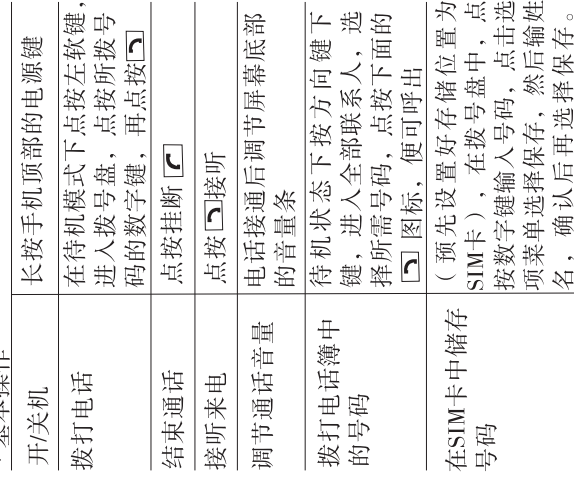 基本操作
开/关机
长按手机顶部的电源键
拨打电话
在待机模式下点按左软键，
进入拨号盘，点按所拨号
码的数字键，再点按
结束通话
点按挂断
接听来电
点按接听
调节通话音量
电话接通后调节屏幕底部
的音量条
拨打电话簿中
的号码
待机状态下按方向键下
键，进入全部联系人，选
择所需号码，点按下面的
图标，便可呼出
在SIM卡中储存
号码
（预先设置好存储位置为
SIM卡），在拨号盘中，点
按数字键输入号码，点击选
项菜单选择保存，然后输姓
名，确认后再选择保存。